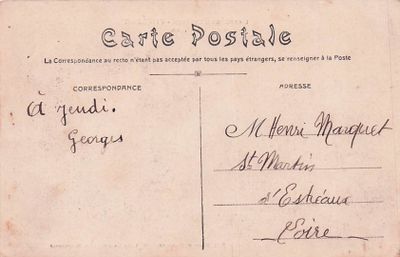 Carte Postale
La Correspondance au recto n'étant pas acceptée par tous les pays étrangers, se renseigner à la Poste
CORRESPONDANCE
à jeudi.
Georges
ADRESSE
M Henri Marquet
St Martin
d'Estréaux
Loire